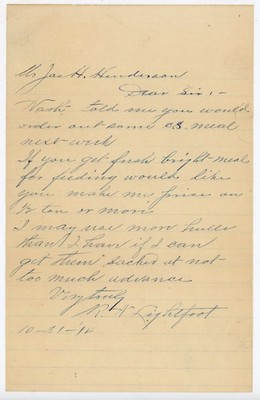 Mr Jas H. Henderson
Dear Sir:-
Nash told me you would
order out some CS meal
next week
If you get fresh bright meal
for feeding would like
you make me price on
½ ton or more
I may use more hulls
than I have if I can
get them sacked at not
too much advance
Very truly
R. H. Lightfoot
10-21-'14